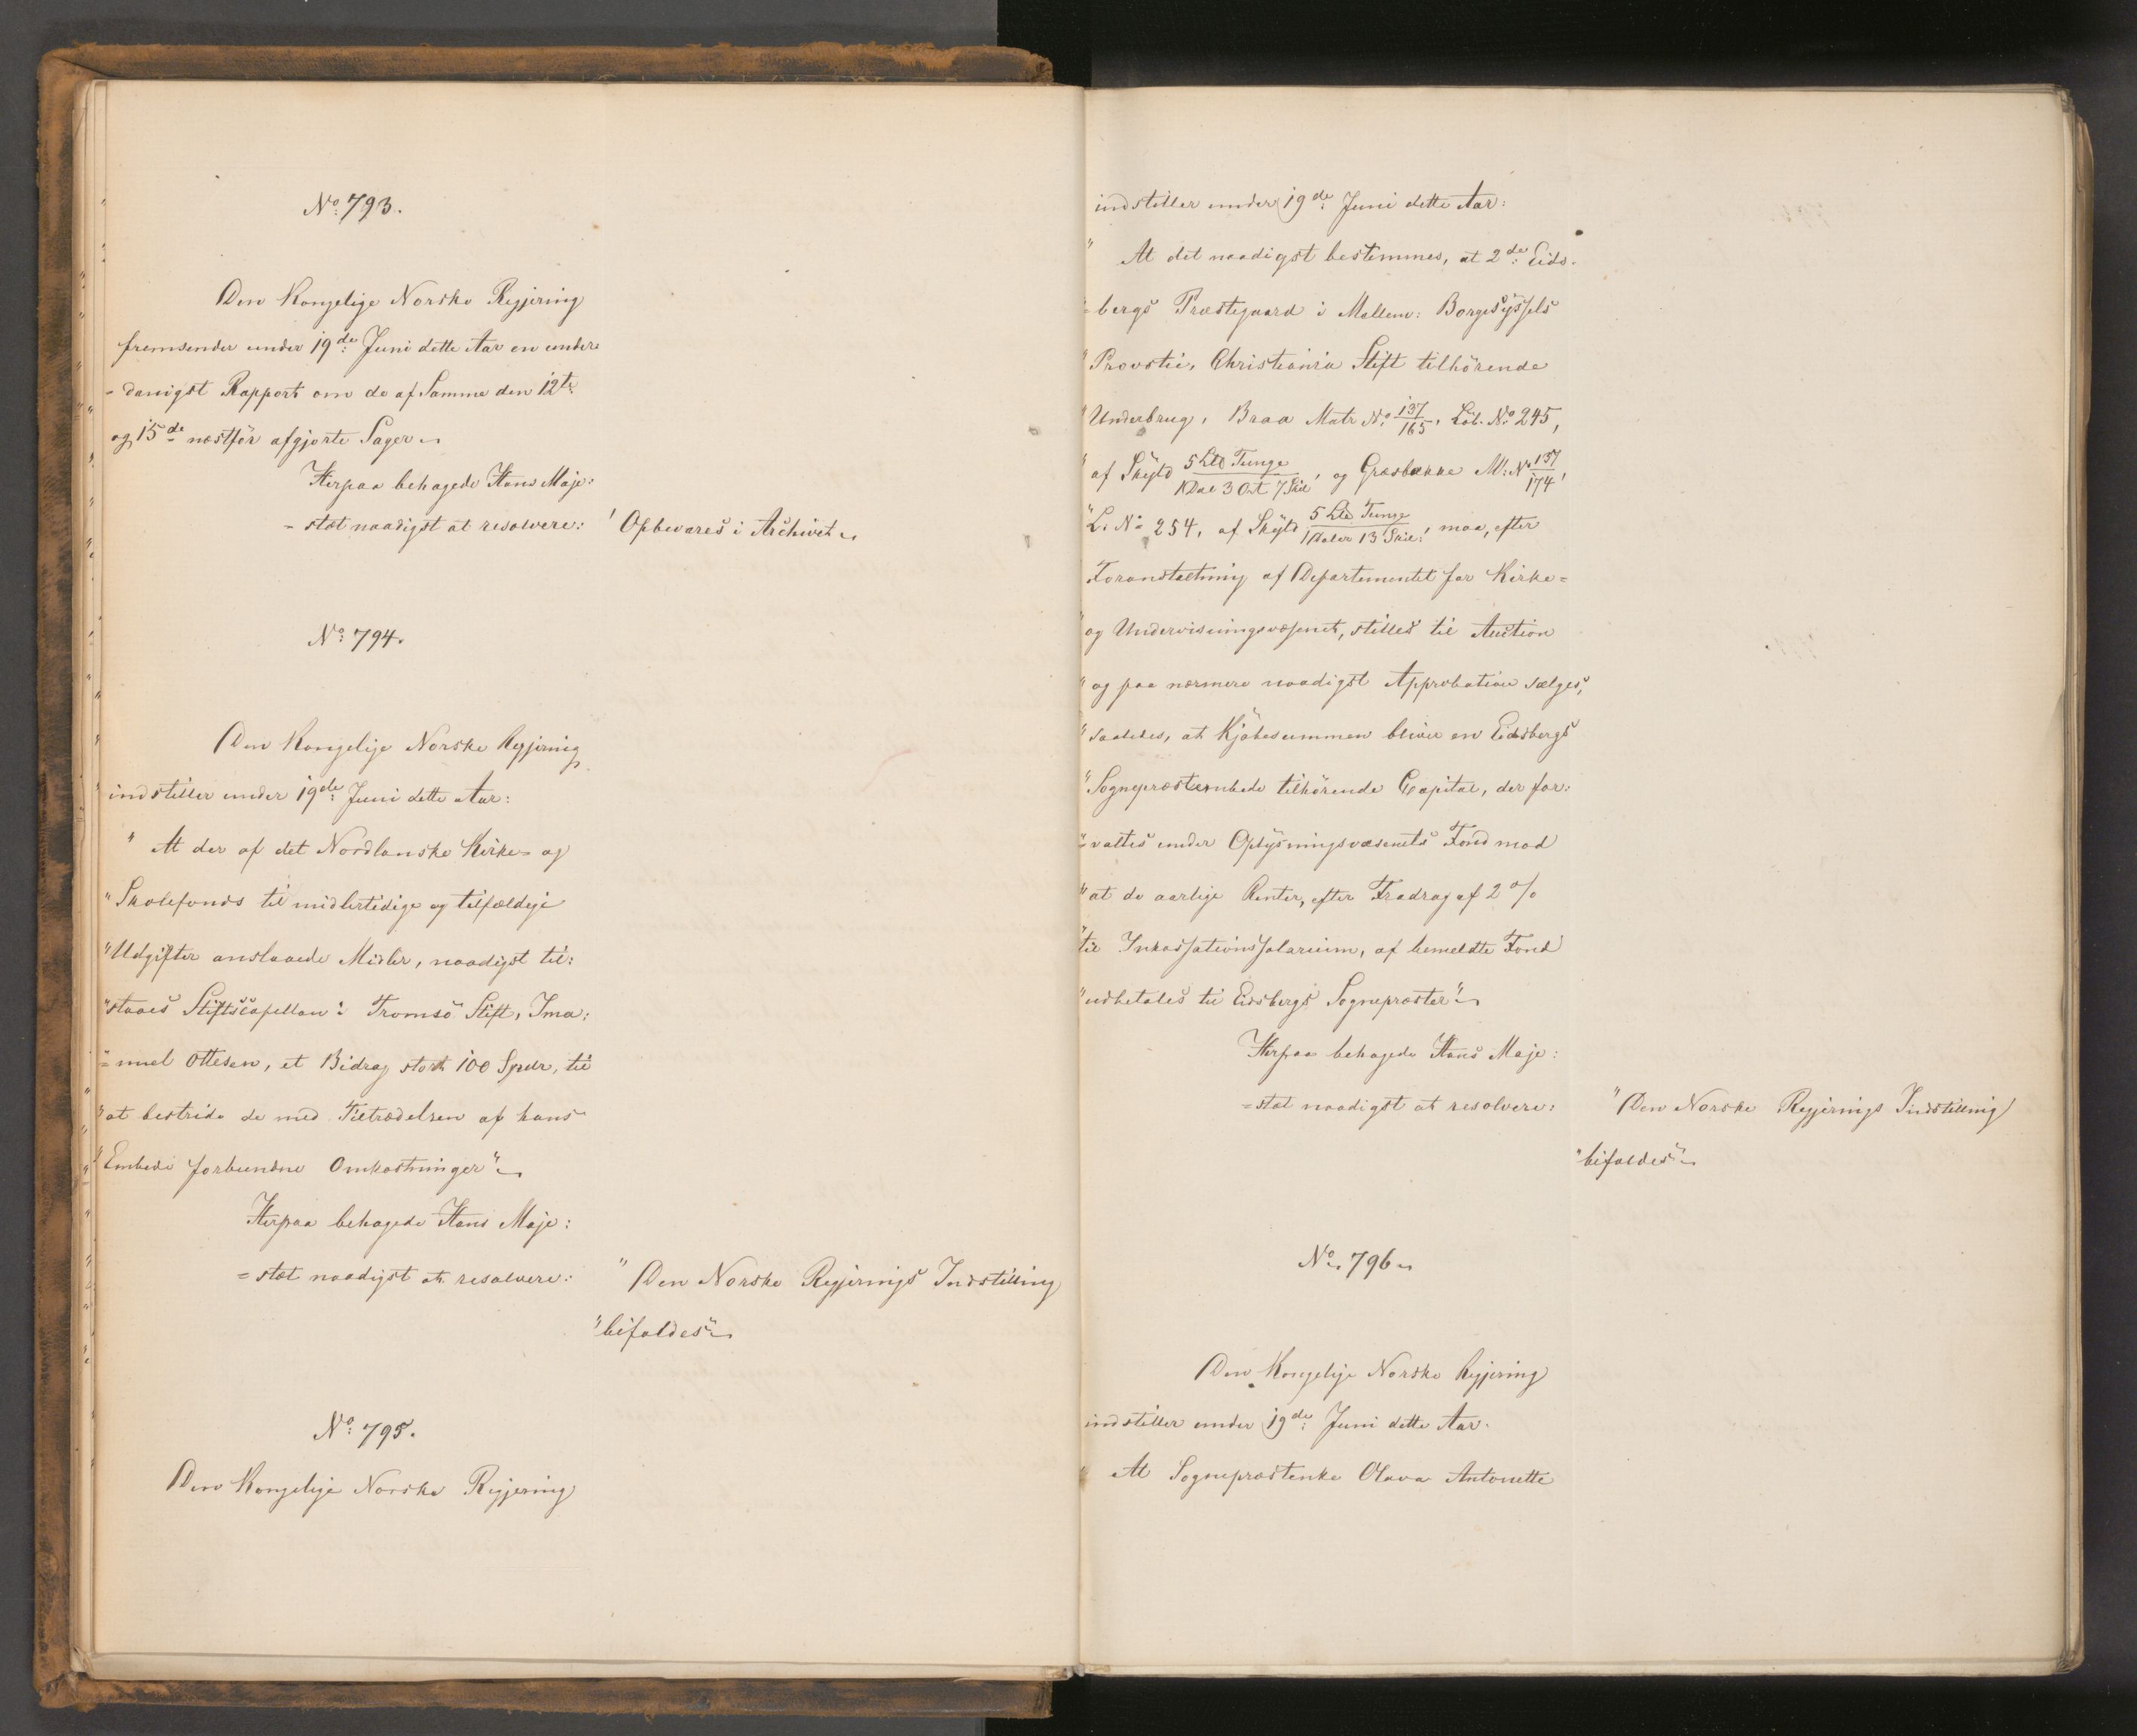 No: 793.
Den Kongelige Norske Regjering
fremsender under 19de: Juni dette Aar en under-
=danigst Rapport om de af Samme den 12te
og 15de næstför afgjorte Sager.
Herpaa behagede Hans Maje:
=stæt naadigst at resolvere: "Opbevares i Archivet"
No: 794.
Den Kongelige Norske Regjering
indstiller under 19de: Juni dette Aar:
" At der af det Nordlanske Kirke- og
"Skolefonds til midlertidige og tilfældige
"Udgifter anslaaede Midler, naadigst til:
"staaes Stiftscapellan i Tromsö Stift, Ima:
"=nuel Ottesen, et Bidrag stort 100 Spdlr, til
"at bestride de med Tiltrædelsen af hans
"Embede forbundne Omkostninger"
Herpaa behagede Hans Maje:
=stæt naadigst at resolvere: "Den Norske Regjerings Indstilling
"bifaldes"
No: 795.
Den Kongelige Norske Regjering
indstiller under 19de: Juni dette Aar:
" At det naadigst bestemmes, at 2de: Eids-
"=bergs Præstegaard i Mellem: Borgesyssels
"Provsti, Christiania Stift tilhörende
"Underbrug, Braa Matr No: 137/165, Löb. No: 245,
"af Skyld 5 Lld Tunge/1 Dal 3 Ort 7 Skil, og Græsbakke M: No 137/174,
"L: No 254, af Skyld 5 Lld Tunge/1 Daler 13 Skil:, maa, efter
Foranstaltning af Departementet for Kirke=
"og Undervisningsvæsenet, stilles til Auction
"og paa nærmere naadigst Approbation sælges,
"saaledes, at Kjöbesummen bliver en Eidsbergs
"Sognepræsteembede tilhörende Capital, der for:
"=valtes under Oplysningsvæsenets Fond mod
"at de aarlige Renter, efter Fradrag af 2 %
"til Inkassationssalarium, af bemeldte Fond
"udbetales til Eidsbergs Sognepræster"
Herpaa behagede Hans Maje:
=stæt naadigst at resolvere: "Den Norske Regjerings Indstilling
"bifaldes"
No: 796
Den Kongelige Norske Regjering
indstiller under 19de: Juni dette Aar.
" At Sognepræstenke Olava Antonette